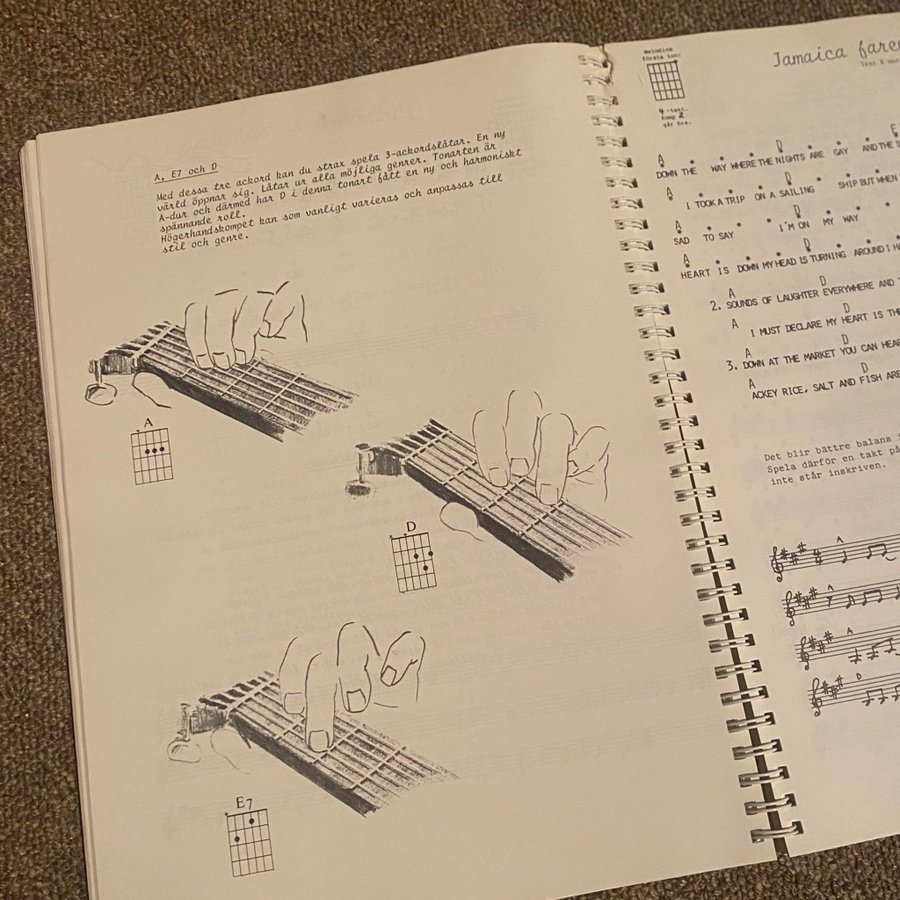 A, E7 och D
Med dessa tre ackord kan du strax spela 3-ackordslåtar. En ny
värld öppnar sig. Låtar ur alla möjliga genrer. Tonarten är
A-dur och därmed har D i denna tonart fått en ny och harmoniskt
spännande roll.
Högerhandskompet kan som vanligt varieras och anpassas till
stil och genre.
A
D
E7
Melodins
första ton:
4-takt.
Komp 2
går bra.
Jamaica
Text &
A D E
DOWN THE WAY WHERE THE NIGHTS ARE GAY AND THE
A D
I TOOK A TRIP ON A SAILING SHIP BUT WHEN
A D
SAD TO SAY I'M ON MY WAY
A D
HEART IS DOWN MY HEAD IS TURNING AROUND I
A D
2. SOUNDS OF LAUGHTER EVERYWHERE AND
A D
I MUST DECLARE MY HEART IS
A D
3. DOWN AT THE MARKET YOU CAN HEAR
A D
ACKEY RICE, SALT AND FISH ARE
Det blir bättre balans
Spela därför en takt på
inte står inskriven.
A
A
A
D